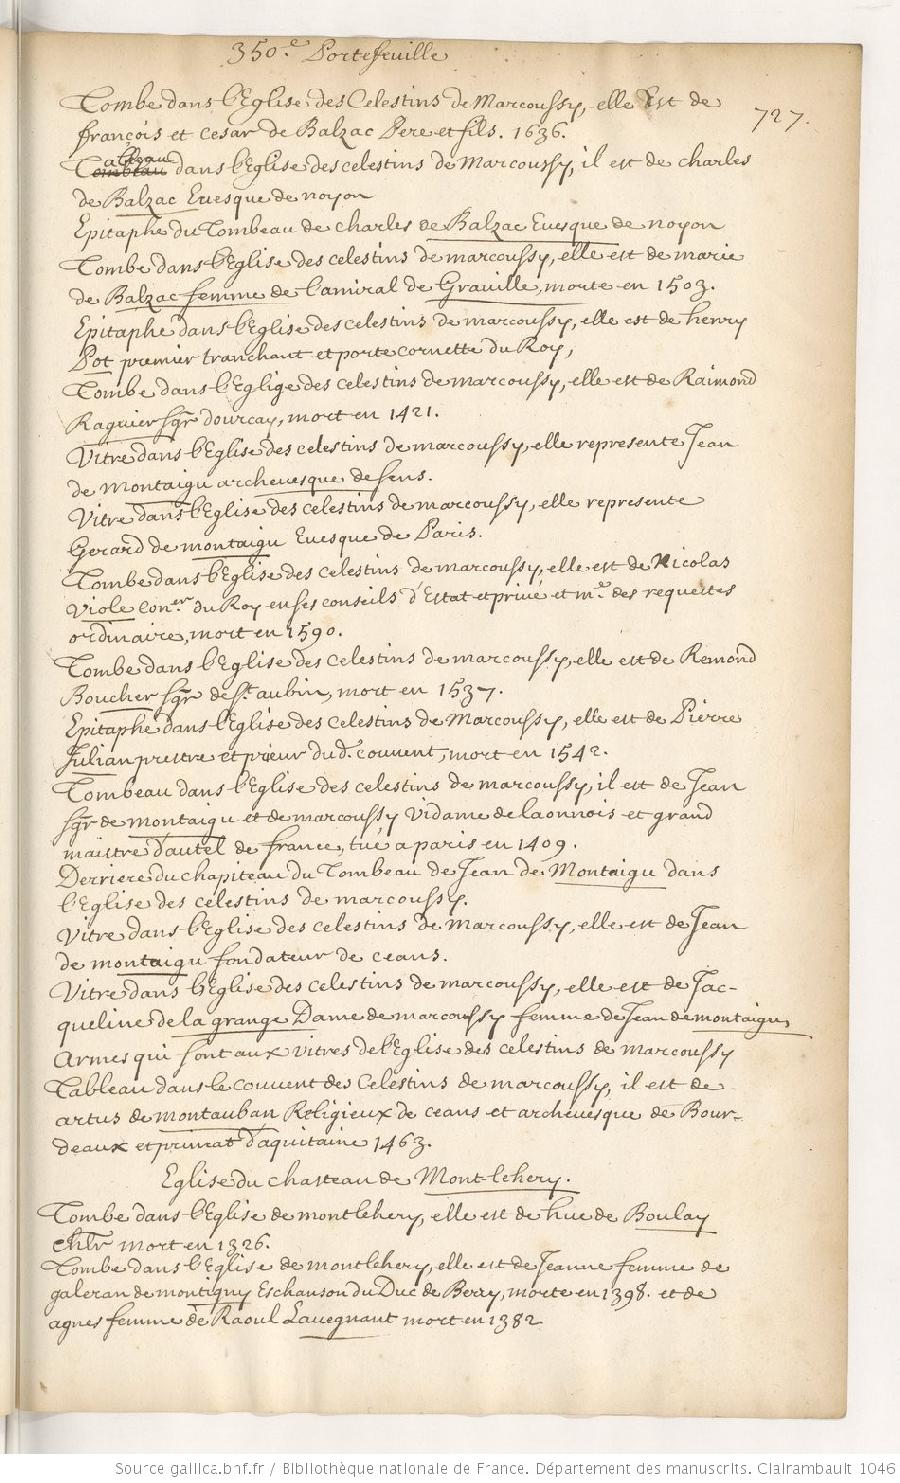 350.e Portefeuille
727.
Tombe dans l'Eglise des Celestins de Marcoussy, elle Est de
françois et Cesar de Balzac Pere et fils. 1636.
Tableau dans l'Eglise des celestins de Marcoussy, il est de charles
de Balzac Evesque de noyon
Epitaphe du Tombeau de charles de Balzac Evesque de noyon
Tombe dans l'Eglise des celestins de marcoussy, elle est de marie
de Balzac femme de l'amiral de Graville, morte en 1503.
Epitaphe dans l'Eglise des celestins de marcoussy, elle est de henry
Pot premier tranchant et porte cornette du Roy,
Tombe dans l'Eglige des celestins de marcoussy, elle est de Raimond
Raguier sgr. dourcay, mort en 1421.
Vitre dans l'Eglise des celestins de marcoussy, elle represente Jean
de Montaigu archevesque de sens.
Vitre dans l'Eglise des celestins de marcoussy, elle represente
Gerard de montaigu Evesque de Paris.
Tombe dans l'Eglise des celestins de marcoussy, elle est de Nicolas
Viole Con.er du Roy en ses conseils d'Estat et privé et m.e des requestes
ordinaire, mort en 1590.
Tombe dans l'Eglise des celestins de marcoussy, elle est de Remond
Boucher sgr de St. aubin, mort en 1537.
Epitaphe dans l'Eglise des celestins de Marcoussy, elle est de Pierre
Julian prestre et prieur dud. couvent, mort en 1542.
Tombeau dans l'Eglise des celestins de marcoussy, il est de Jean
sgr de montaigu et de marcoussy Vidame de laonnois et grand
maistre d'autel de france, tué a paris en 1409.
Derriere du chapiteau du Tombeau de Jean de Montaigu dans
l'Eglise des celestins de marcoussy.
Vitre dans l'Eglise des celestins de marcoussy, elle est de Jean
de montaigu fondateur de ceans.
Vitre dans l'Eglise des celestins de marcoussy, elle est de Jac-
queline de la grange Dame de marcoussy femme de Jean de montaigu,
Armes qui sont aux vitres de l'Eglise des celestins de marcoussy
Tableau dans le couvent des Celestins de marcoussy, il est de
artus de montauban Religieux de ceans et archevesque de Bour-
deaux et primat d'aquitaine 1463.
Eglise du chasteau de Montlehery.
Tombe dans l'Eglise de montlehery, elle est de hue de Boulay
chlr mort en 1326.
Tombe dans l'Eglise de montlehery, elle est de Jeanne femme de
galeran de montigny Eschanson du Duc de Berry, morte en 1398. et de
agnes femme de Raoul Lavegnant mort en 1382
Source gallica.bnf.fr / Bibliothèque nationale de France. Département des manuscrits. Clairambault 1046